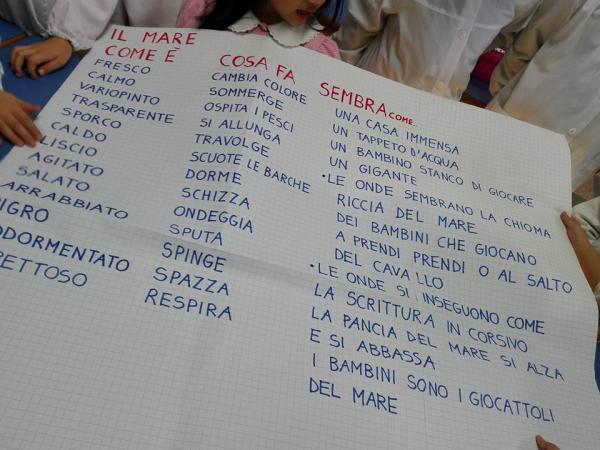 IL MARE
COME È
FRESCO
CALMO
VARIOPINTO
TRASPARENTE
SPORCO
CALDO
LISCIO
AGITATO
SALATO
ARRABBIATO
IGRO
DDORMENTATO
PETTOSO
COSA FA
CAMBIA COLORE
SOMMERGE
OSPITA I PESCI
SI ALLUNGA
TRAVOLGE
SCUOTE LE BARCHE
DORME
SCHIZZA
ONDEGGIA
SPUTA
SPINGE
SPAZZA
RESPIRA
SEMBRA COME...
UNA CASA IMMENSA
UN TAPPETO D'ACQUA
UN BAMBINO STANCO DI GIOCARE
UN GIGANTE
•LE ONDE SEMBRANO LA CHIOMA
RICCIA DEL MARE
DEI BAMBINI CHE GIOCANO
A PRENDI PRENDI O AL SALTO
DEL CAVALLO
•LE ONDE SI INSEGUONO COME
LA SCRITTURA IN CORSIVO
LA PANCIA DEL MARE SI ALZA
E SI ABBASSA
I BAMBINI SONO I GIOCATTOLI
DEL MARE